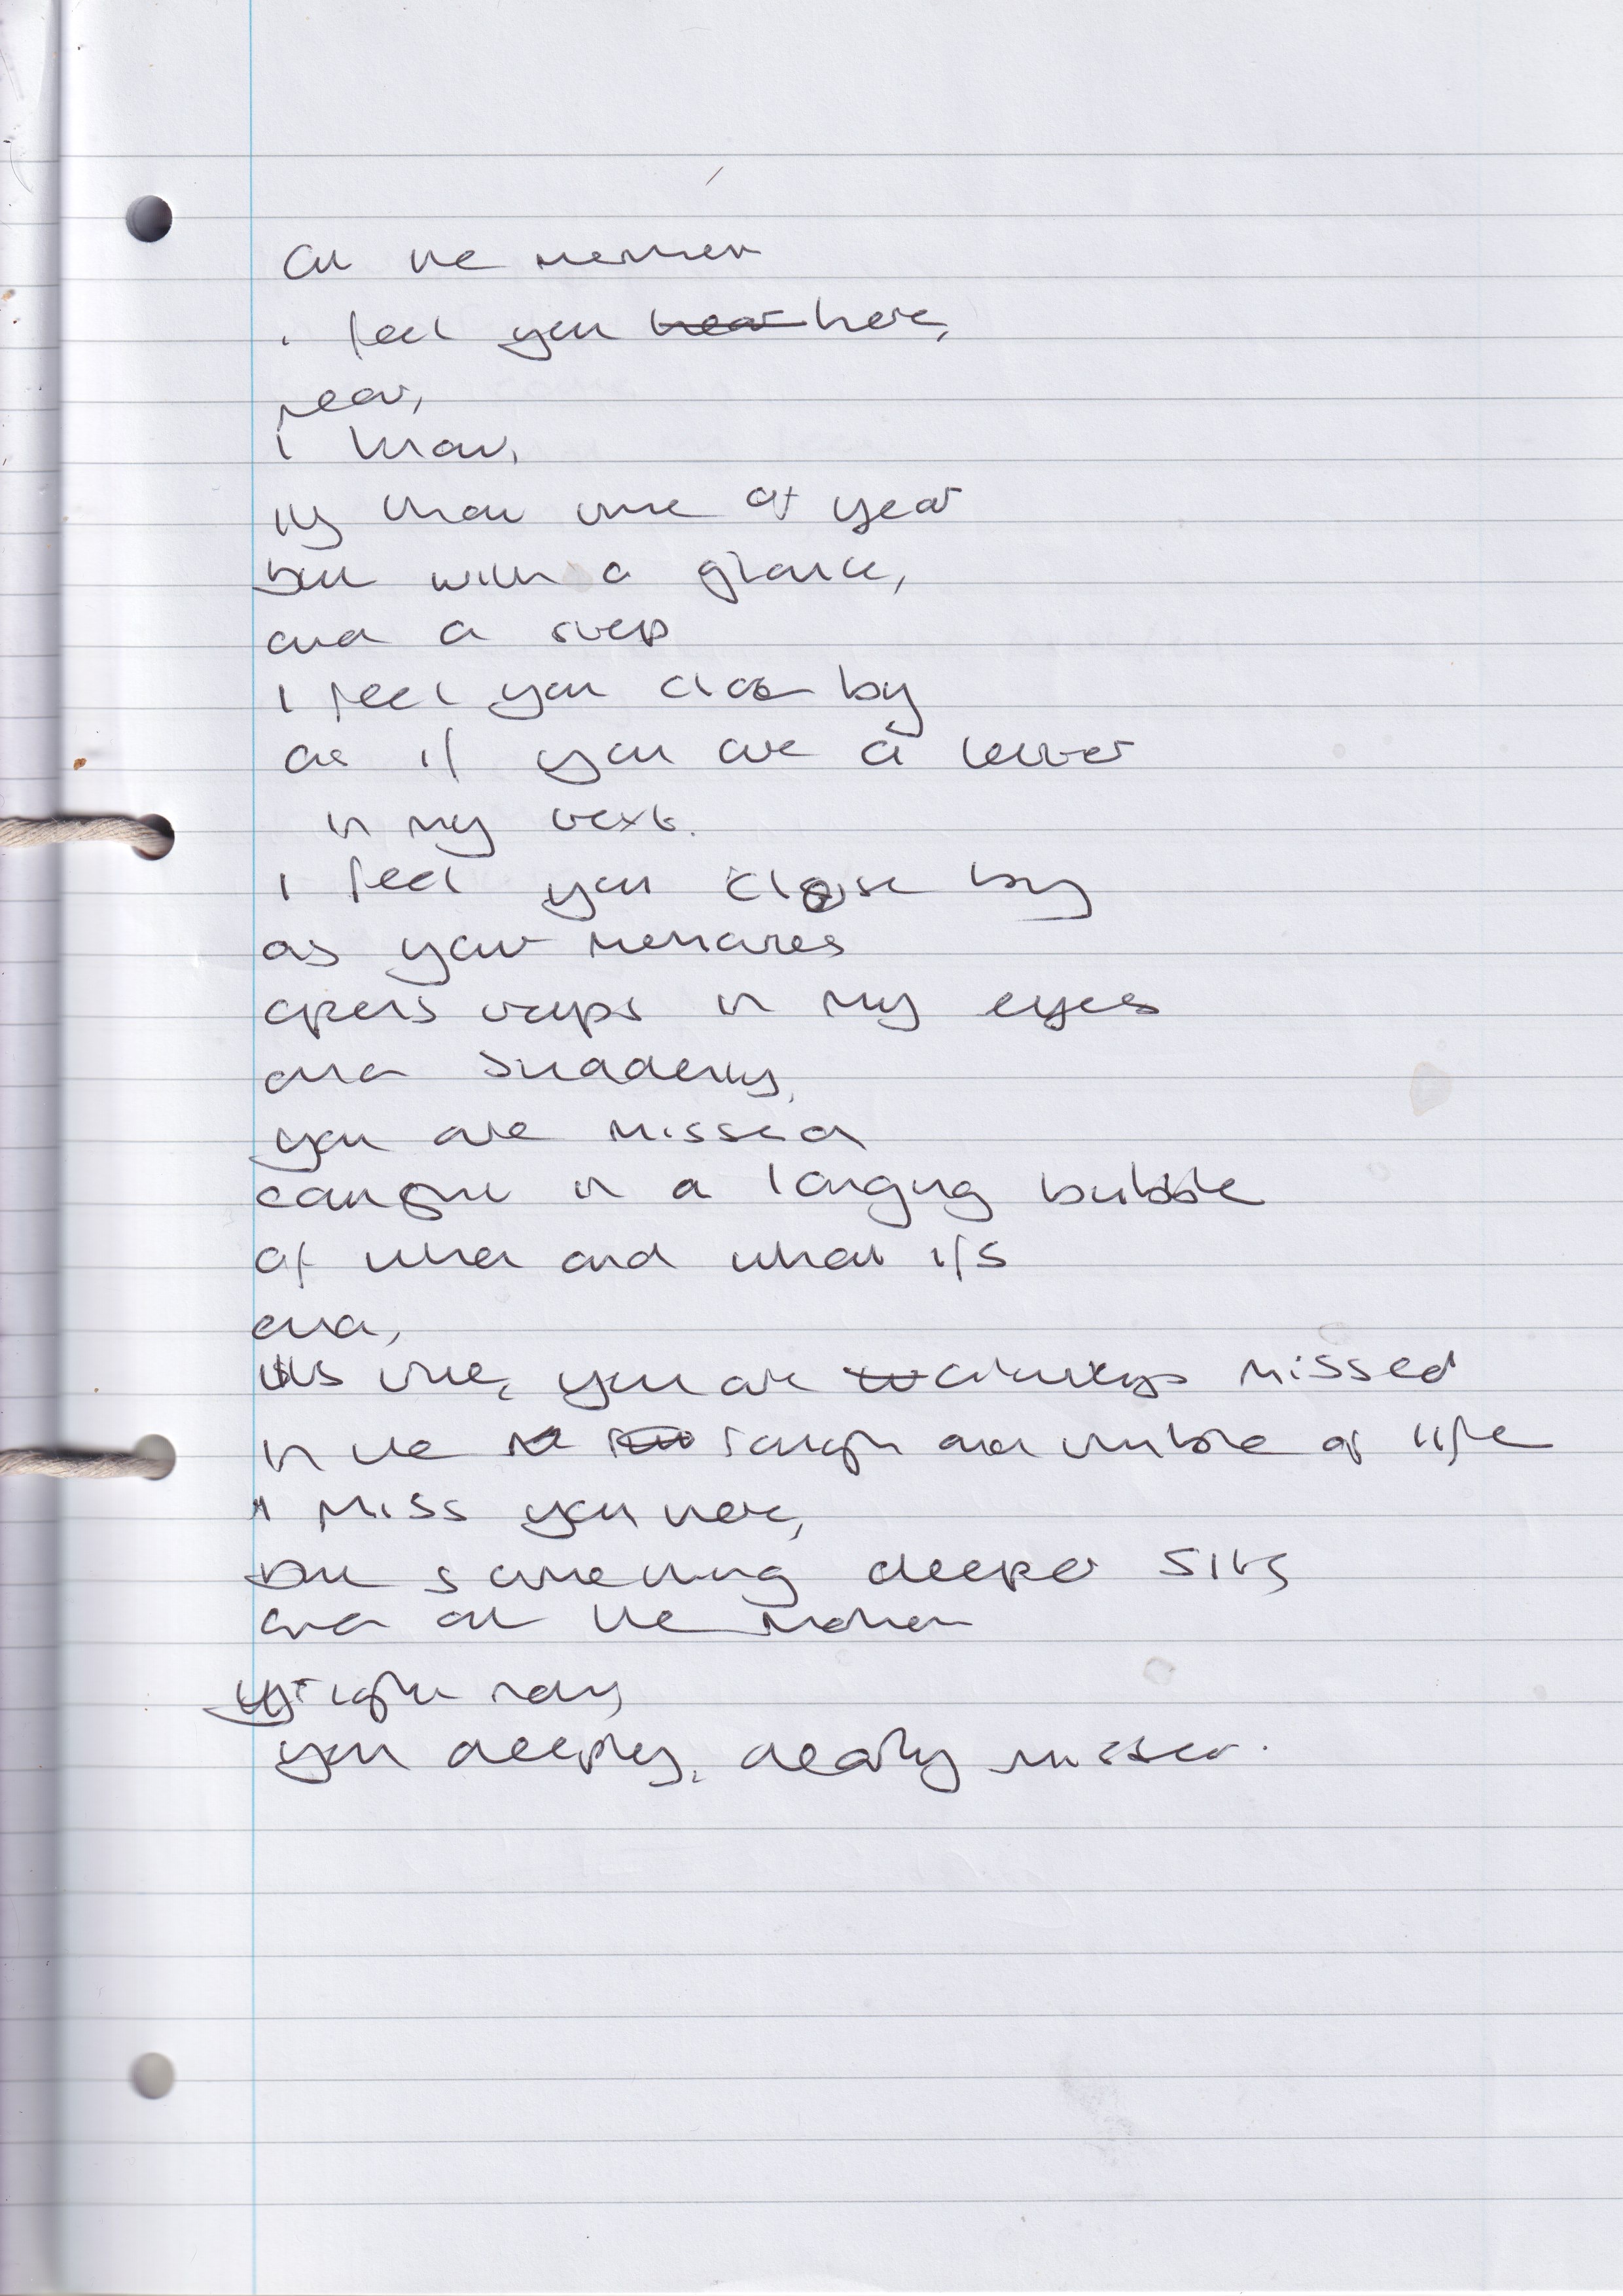 at the moment
i feel you ~~near~~ here,
near,
I know,
its that time of year
but with a glance,
and a step
I feel you close by
as if you are a letter
in my text.
I feel you close by
as your memories
opens in my eyes
and suddenly,
you are missed
caught in a longing bubble
of when and what ifs
and,
its true, you are always missed
in the rough and tumble of life
I miss you here,
but something deeper sits
and at the moment
right now,
you deeply, dearly missed.